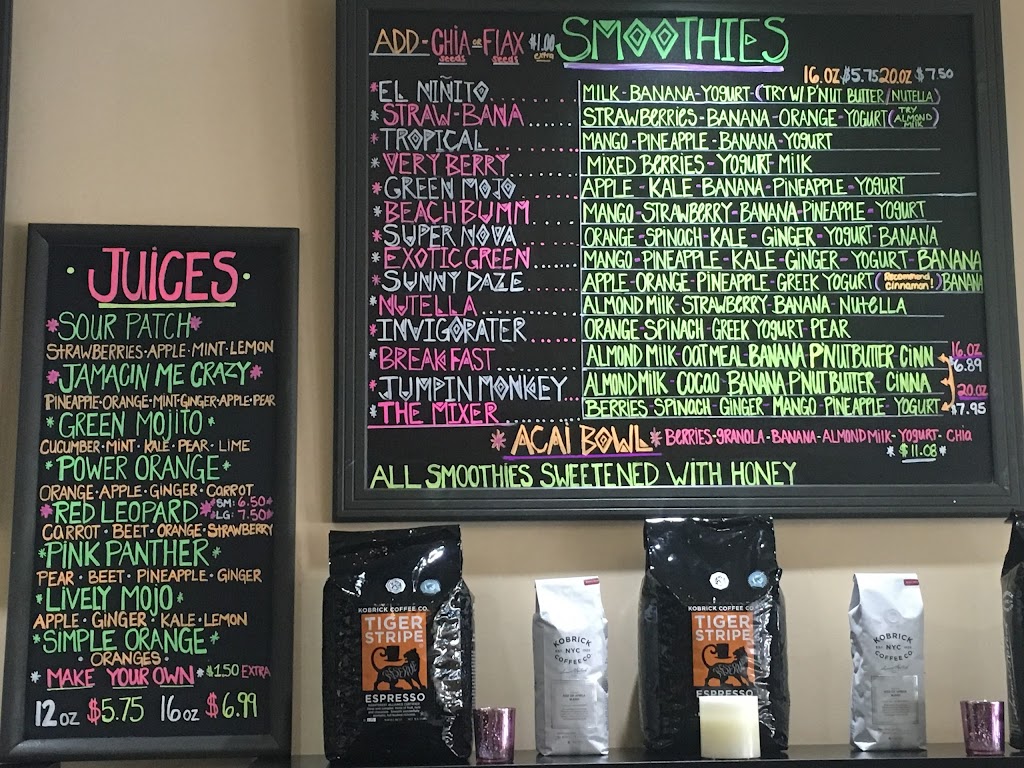 JUICES
SOUR PATCH
STRAWBERRIES·APPLE·MINT·LEMON
JAMACIN ME CRAZY
PINEAPPLE·ORANGE·MINT·GINGER·APPLE·PEAR
GREEN MOJITO
CUCUMBER·MINT·KALE·PEAR·LIME
POWER ORANGE
ORANGE·APPLE·GINGER·CARROT
RED LEOPARD SM: 6.50 LG: 7.50
CARROT·BEET·ORANGE·STRAWBERRY
PINK PANTHER
PEAR·BEET·PINEAPPLE·GINGER
LIVELY MOJO
APPLE·GINGER·KALE·LEMON
SIMPLE ORANGE
·ORANGES·
MAKE YOUR OWN $1.50 EXTRA
12oz $5.75 16oz $6.99
ADD - CHIA seeds OR FLAX seeds $1.00 extra
SMOOTHIES
16.oz $5.75 20.oz $7.50
*EL NIÑITO...... MILK-BANANA-YOGURT-(TRY W/ P'NUT BUTTER/NUTELLA)
*STRAW-BANA...... STRAWBERRIES-BANANA-ORANGE-YOGURT (TRY ALMOND MILK)
*TROPICAL........ MANGO-PINEAPPLE-BANANA-YOGURT
*VERY BERRY...... MIXED BERRIES-YOGURT-MILK
*GREEN MOJO...... APPLE-KALE-BANANA-PINEAPPLE-YOGURT
*BEACH BUMM..... MANGO-STRAWBERRY-BANANA-PINEAPPLE-YOGURT
*SUPER NOVA...... ORANGE-SPINACH-KALE-GINGER-YOGURT-BANANA
*EXOTIC GREEN..... MANGO-PINEAPPLE-KALE-GINGER-YOGURT-BANANA
*SUNNY DAZE...... APPLE-ORANGE-PINEAPPLE-GREEK YOGURT (Recommend Cinnamon!) BANANA
*NUTELLA........ ALMOND MILK-STRAWBERRY-BANANA-NUTELLA
*INVIGORATER..... ORANGE SPINACH-GREEK YOGURT-PEAR
*BREAKFAST...... ALMOND MILK-OATMEAL-BANANA PNUTBUTTER CINN 16.oz $6.89
*JUMPIN MONKEY... ALMONDMILK-COCAO-BANANA PNUTBUTTER-CINNA 20.oz
*THE MIXER...... BERRIES SPINACH GINGER MANGO PINEAPPLE YOGURT $7.95
*ACAI BOWL* BERRIES-GRANOLA-BANANA-ALMONDMILK-YOGURT-CHIA
*$11.08*
ALL SMOOTHIES SWEETENED WITH HONEY
KOBRICK COFFEE CO.
TIGER
STRIPE
ESPRESSO
KOBRICK
EST. NYC
COFFEE CO.
KOBRICK COFFEE CO.
TIGER
STRIPE
ESPRESSO
KOBRICK
EST. NYC
COFFEE CO.